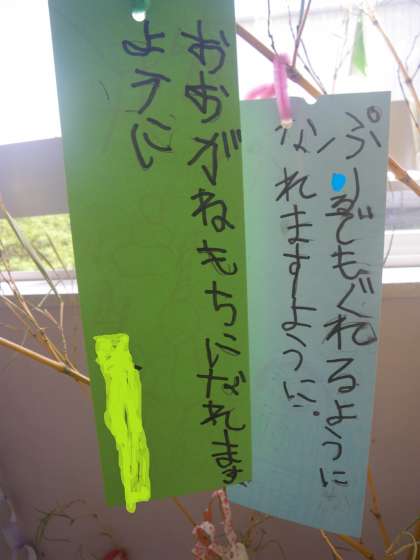 おおがねもちになれます
ように
ぷーるでもぐれるように
なれますように